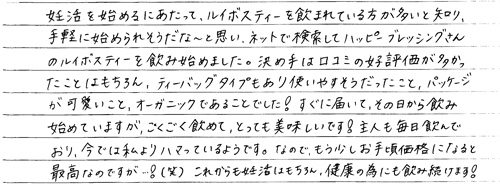 妊活を始めるにあたって、ルイボスティーを飲まれている方が多いと知り、
手軽に始められそうだな〜と思い、ネットで検索してハッピーブレッシングさん
のルイボスティーを飲み始めました。決め手は口コミの好評価が多かっ
たことはもちろん、ティーバッグタイプもあり使いやすそうだったこと、パッケージ
が可愛いこと、オーガニックであることでした!すぐに届いて、その日から飲み
始めていますが、ごくごく飲めて、とっても美味しいです!主人も毎日飲んで
おり、今では私よりハマっているようです。なので、もう少しお手頃価格になると
最高なのですが…!(笑)これからも妊活はもちろん、健康の為にも飲み続けます!